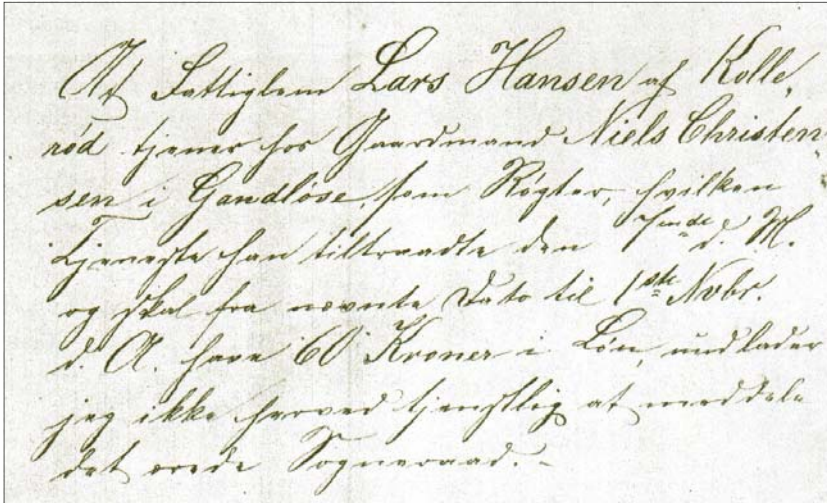 At Fattiglem Lars Hansen af Kolle,
röd tjener hos Gaardmand Niels Christen,
sen i Gandlöse som Røgter, hvilken
Tjeneste han tiltraadte den 7nde d. M.
og skal fra nævnte Dato til 1ste Novbr.
d. A. have 60 Kroner i Løn, undlader
jeg ikke herved tjenstlig at meddele
det ærede Sogneraad. -